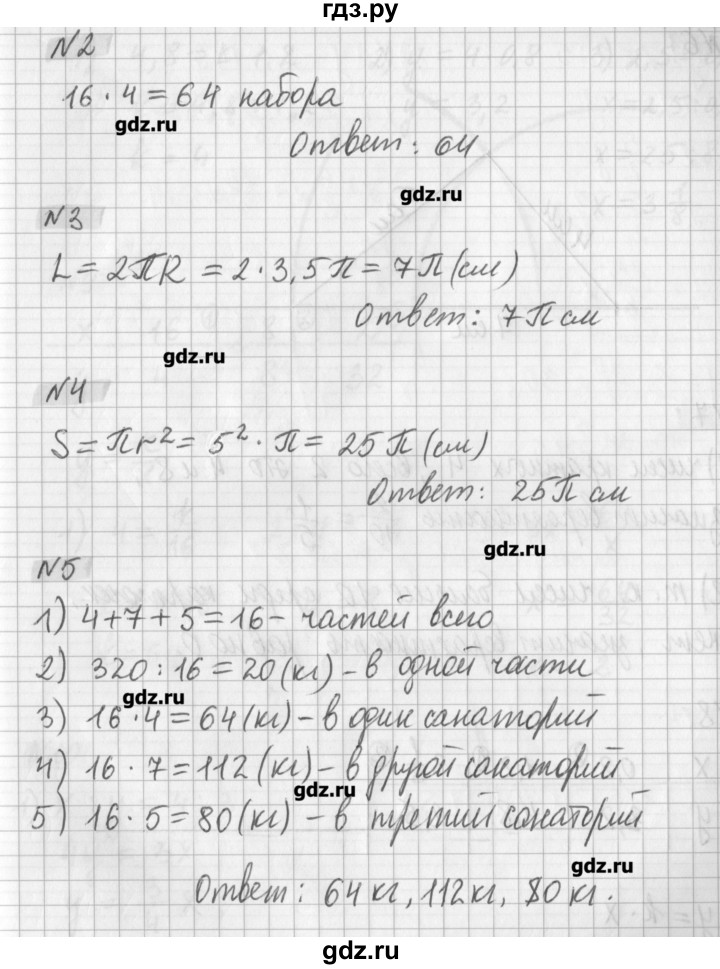 гдз.ру
№2
16 · 4 = 64 набора
gdz.ru
Ответ: 64
gdz.ru
№3
L = 2πR = 2 · 3,5π = 7π (см)
Ответ: 7π см
gdz.ru
№4
S = πr² = 5² · π = 25π (см)
Ответ: 25π см
gdz.ru
№5
1) 4 + 7 + 5 = 16 – частей всего
2) 320 : 16 = 20 (кг) – в одной части
gdz.ru
3) 16 · 4 = 64 (кг) – в один санаторий
4) 16 · 7 = 112 (кг) – в другой санаторий
gdz.ru
5) 16 · 5 = 80 (кг) – в третий санаторий
gdz.ru
Ответ: 64 кг, 112 кг, 80 кг.
gdz.ru